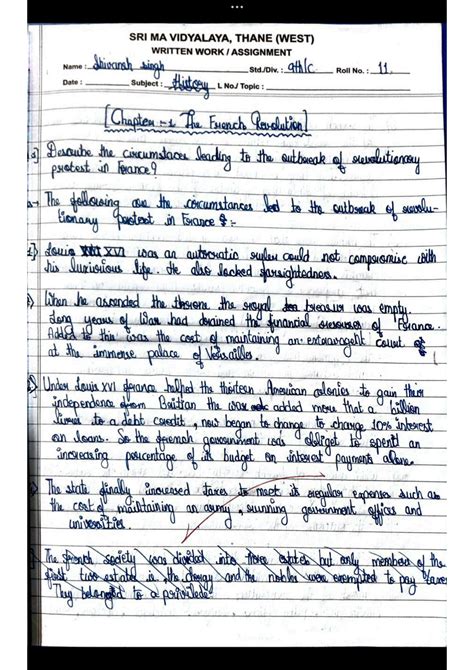 SRI MA VIDYALAYA, THANE (WEST)
WRITTEN WORK / ASSIGNMENT
Name : Shivansh singh Std./Div. : 9th/C Roll No. : 11
Date : Subject : History L No./ Topic :
[Chapter - 1 The French Revolution]
Describe the circumstaces leading to the outbreak of revolutionary
protest in France?
The following are the circumstances led to the outbreak of revolu-
tionary protest in France :-
1) Louis XVI was an autocratic ruler could not compromise with
his luxurious life. He also lacked farsightedness.
When he ascended the throne the royal treasur was empty.
Long years of War had drained the financial resources of France.
Added to this was the cost of maintaining an extravagent court
at the immense palace of Versailles.
Under Louis XVI france helped the thirteen American colonies to gain their
independence from the added more that a billion
to a debt credit, now began to charge 10% interest
on loans. So the french government was obliget to spent an
increasing percentage of its budget on interest payments alone.
The state finally increased taxes to meet its regular expenses such as
the cost of maintaining an army, running government offices and
universities.
The french society was divided into three estates but only members of the
first two estates i.e, the clergy and the nobles were exempted to pay taxes
They belonged to a privilede